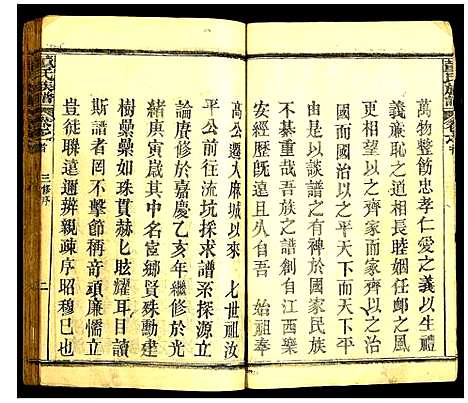 萬物整飭忠孝仁愛之義以生禮
義廉恥之道相長睦婣任卹之風
更相望以之齊家而家齊以之治
國而國治以之平天下而天下平
由斯以談族譜之有裨於國家民族
綦重哉吾族之譜創自江西樂
安經久且遠自吾 始祖奉
高公遷大麻城以來 七世祖汝
平公前往流坑採求譜系探源立
論賡修於嘉慶乙亥年繼修於光
緒庚寅歲其中名宦鄉賢殊勳建
樹纍纍如珠貫赫匕眩耀耳目讀
斯譜者罔不擊節稱奇頑廉懦立
豈徒聯遠邇辨親疎序昭穆已也
董氏族譜
三修序
二